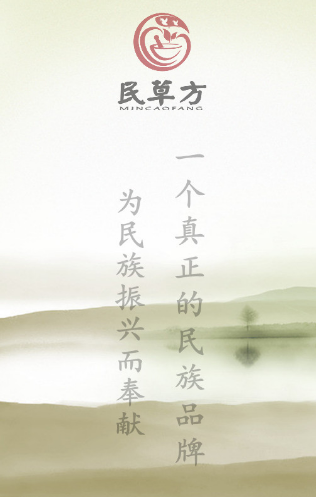 民草方
MINCAOFANG
一个真正的民族品牌
为民族振兴而奉献